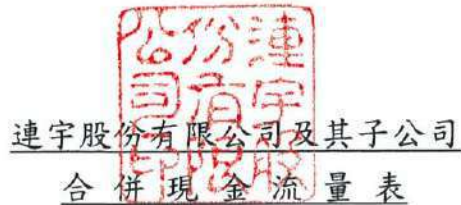 連宇股份有限公司印
連宇股份有限公司及其子公司
合併現金流量表